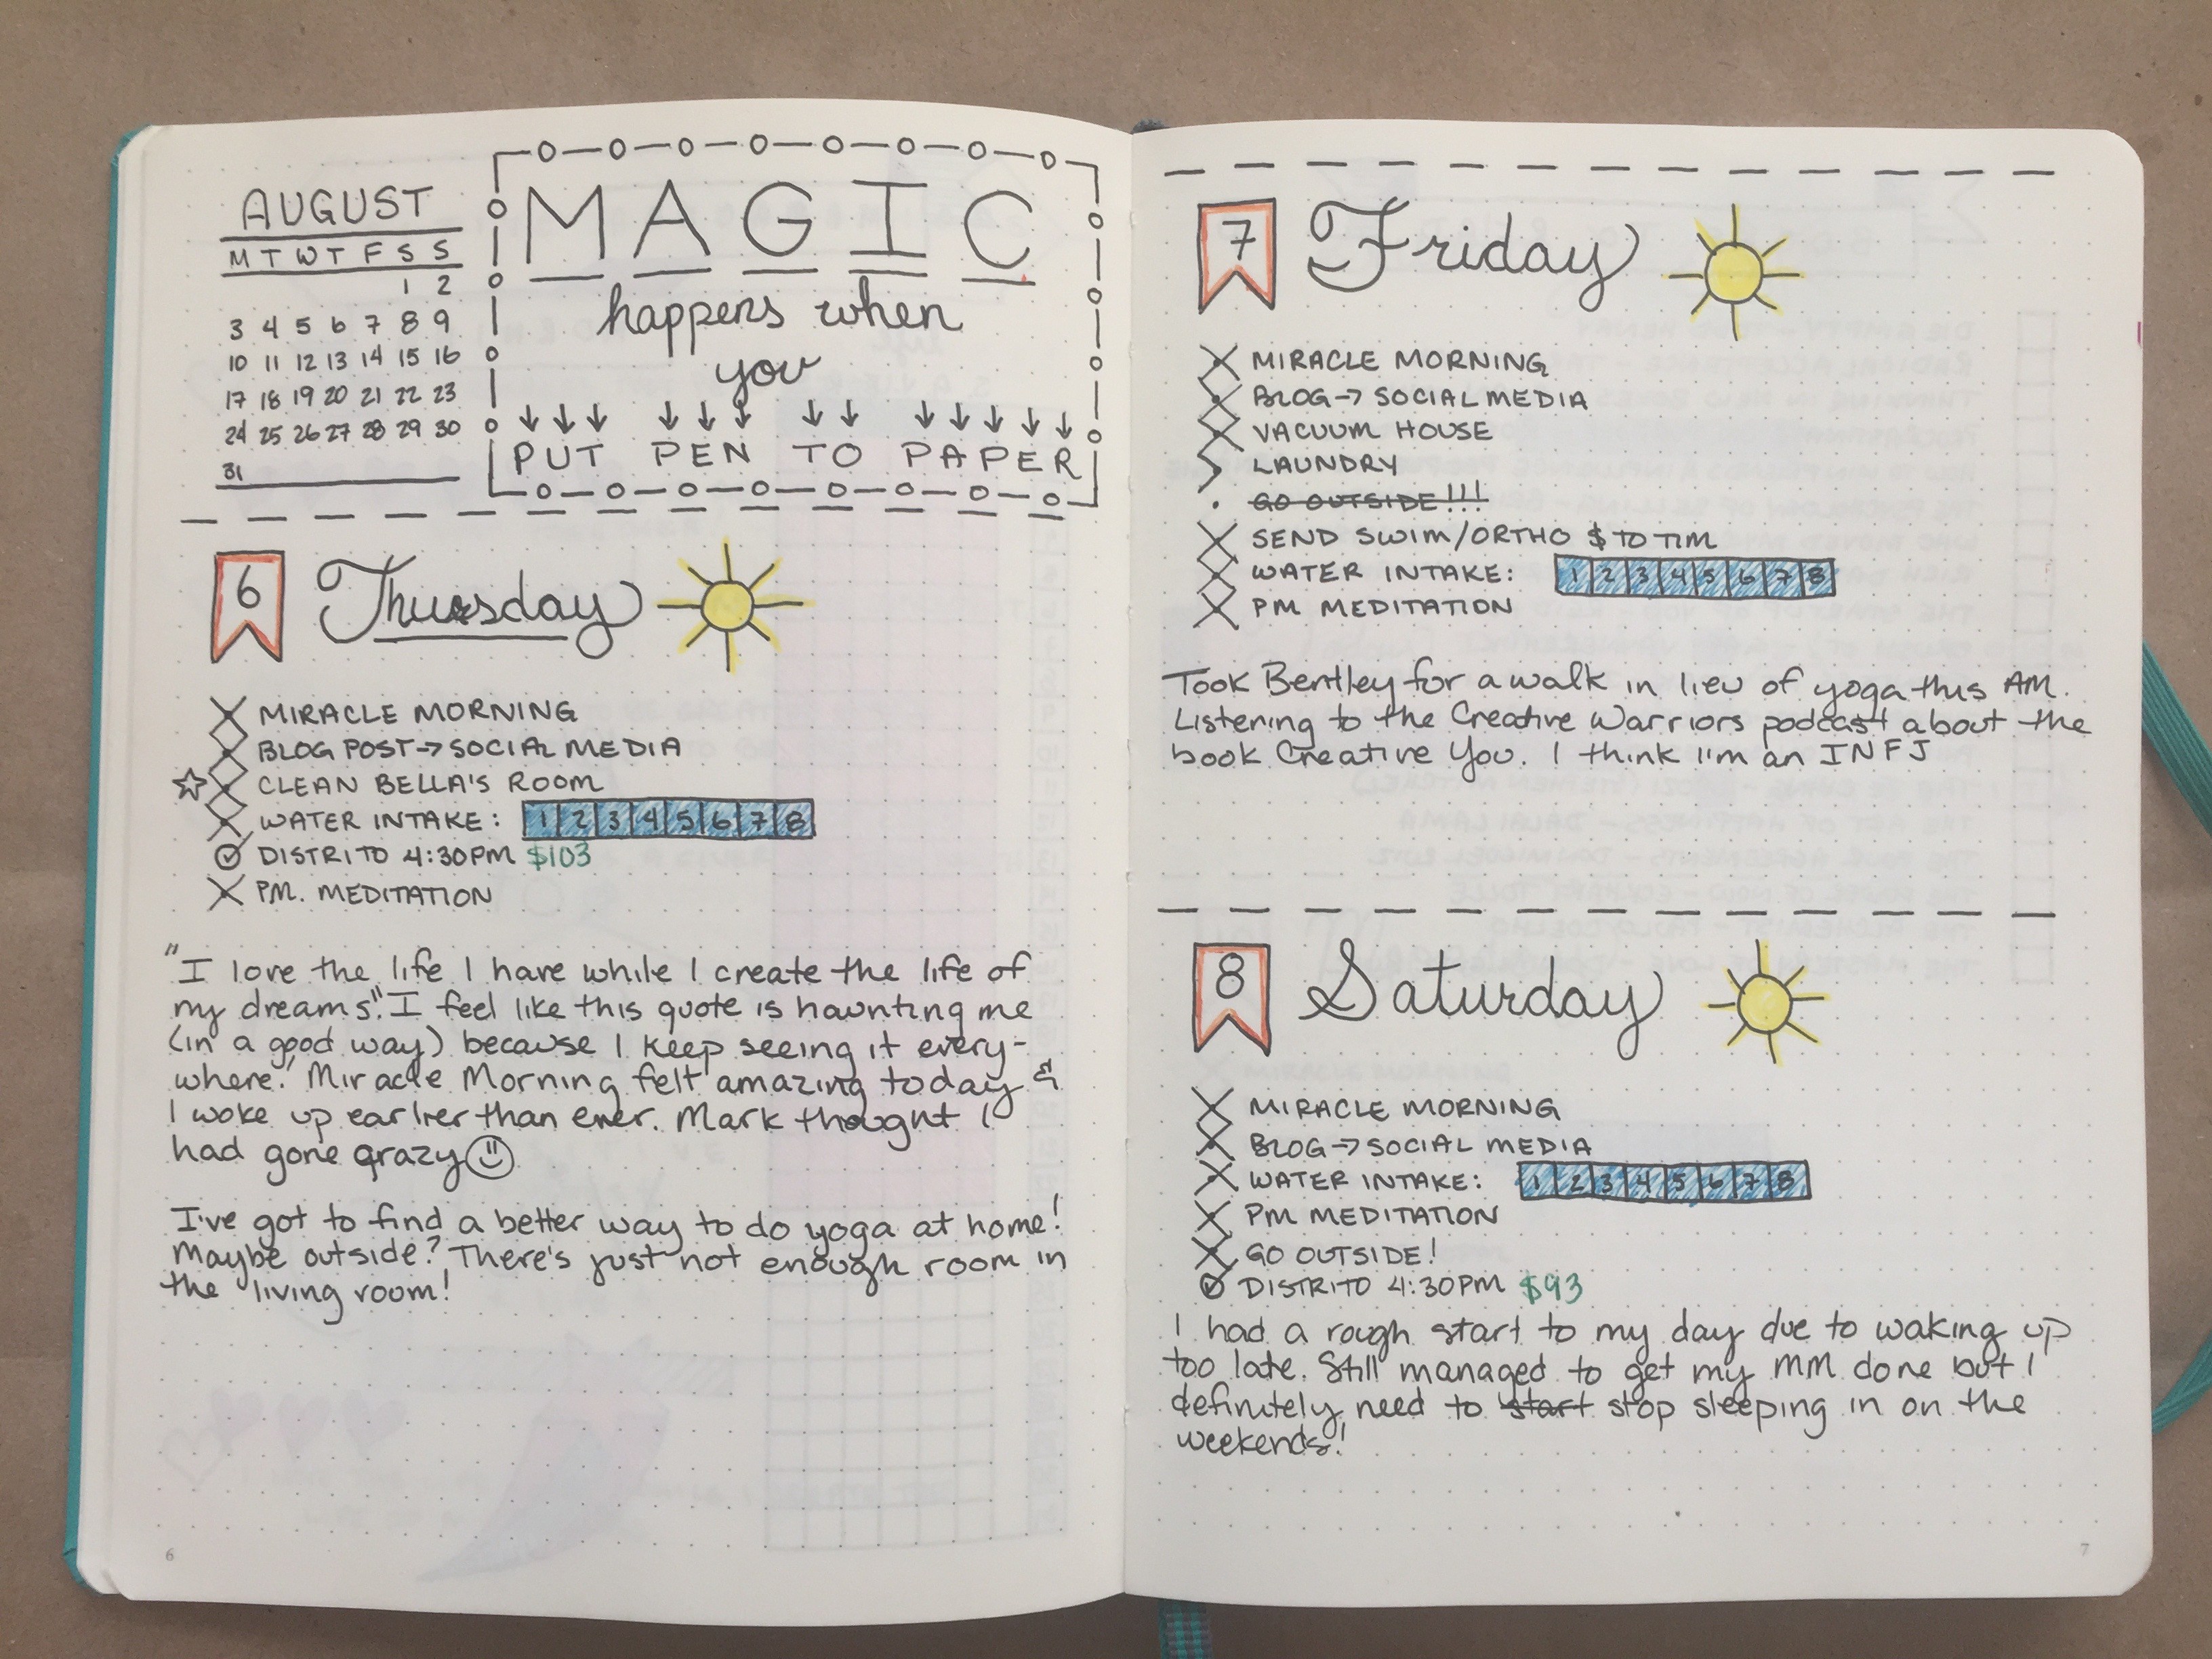 AUGUST
M T W T F S S
1 2
3 4 5 6 7 8 9
10 11 12 13 14 15 16
17 18 19 20 21 22 23
24 25 26 27 28 29 30
31
MAGIC
happens when
you
PUT PEN TO PAPER
6 Thursday
MIRACLE MORNING
BLOG POST → SOCIAL MEDIA
☆ CLEAN BELLA'S ROOM
WATER INTAKE: 1 2 3 4 5 6 7 8
DISTRITO 4:30PM $103
PM. MEDITATION
"I love the life I have while I create the life of
my dreams". I feel like this quote is haunting me
(in a good way) because I keep seeing it every-
where! Miracle Morning felt amazing today &
I woke up earlier than ever. Mark thought I
had gone crazy
I've got to find a better way to do yoga at home!
Maybe outside? There's just not enough room in
the living room!
6
7 Friday
MIRACLE MORNING
BLOG → SOCIAL MEDIA
VACUUM HOUSE
LAUNDRY
GO OUTSIDE!!!
SEND SWIM/ORTHO $ TO TIM
WATER INTAKE: 1 2 3 4 5 6 7 8
PM MEDITATION
Took Bentley for a walk in lieu of yoga this AM.
Listening to the Creative Warriors podcast about the
book Creative You. I think I'm an INFJ
8 Saturday
MIRACLE MORNING
BLOG → SOCIAL MEDIA
WATER INTAKE: 1 2 3 4 5 6 7 8
PM MEDITATION
GO OUTSIDE!
DISTRITO 4:30PM $93
I had a rough start to my day due to waking up
too late. Still managed to get my MM done but I
definitely need to start stop sleeping in on the
weekends!
7